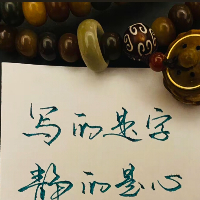 写的是字
静的是心